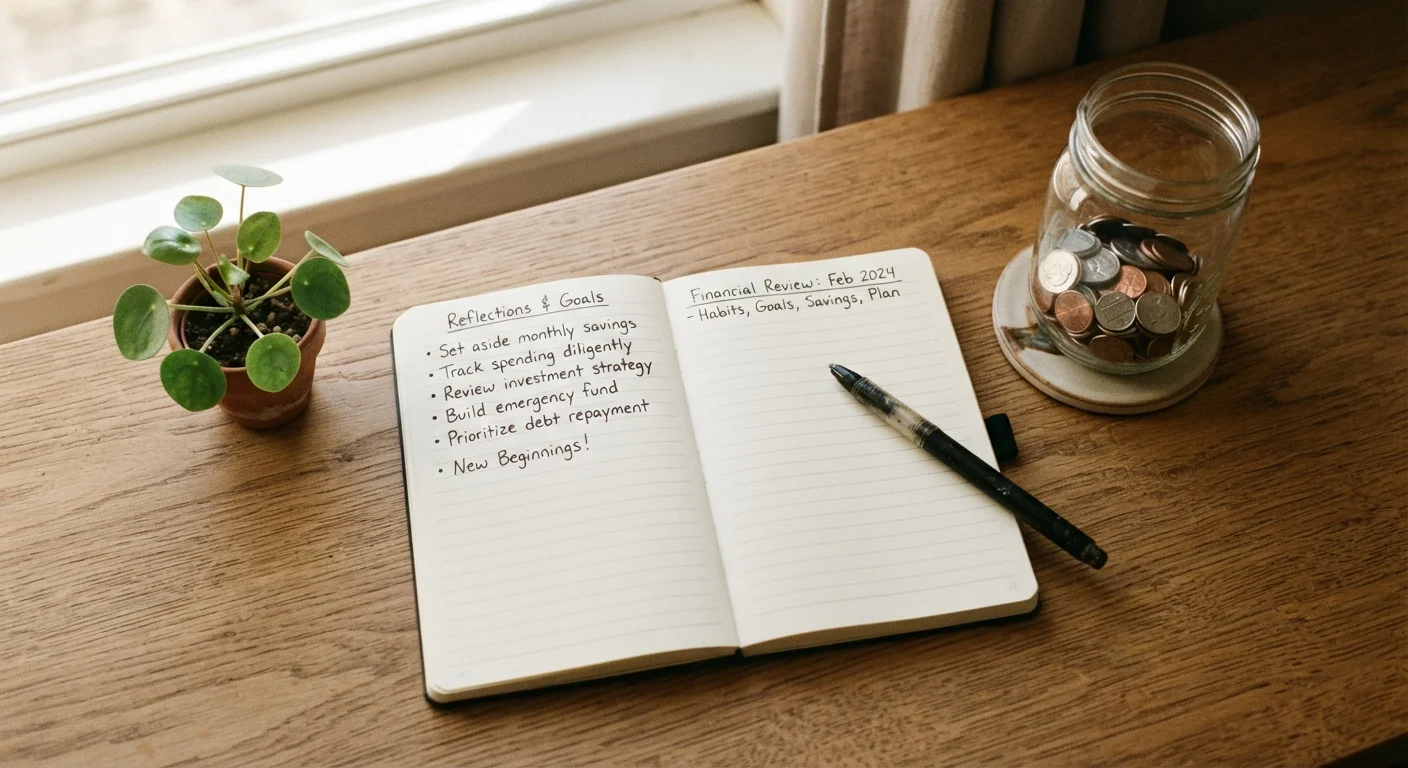 Reflections & Goals
• Set aside monthly savings
• Track spending diligently
• Review investment strategy
• Build emergency fund
• Prioritize debt repayment
• New Beginnings!
Financial Review: Feb 2024
- Habits, Goals, Savings, Plan